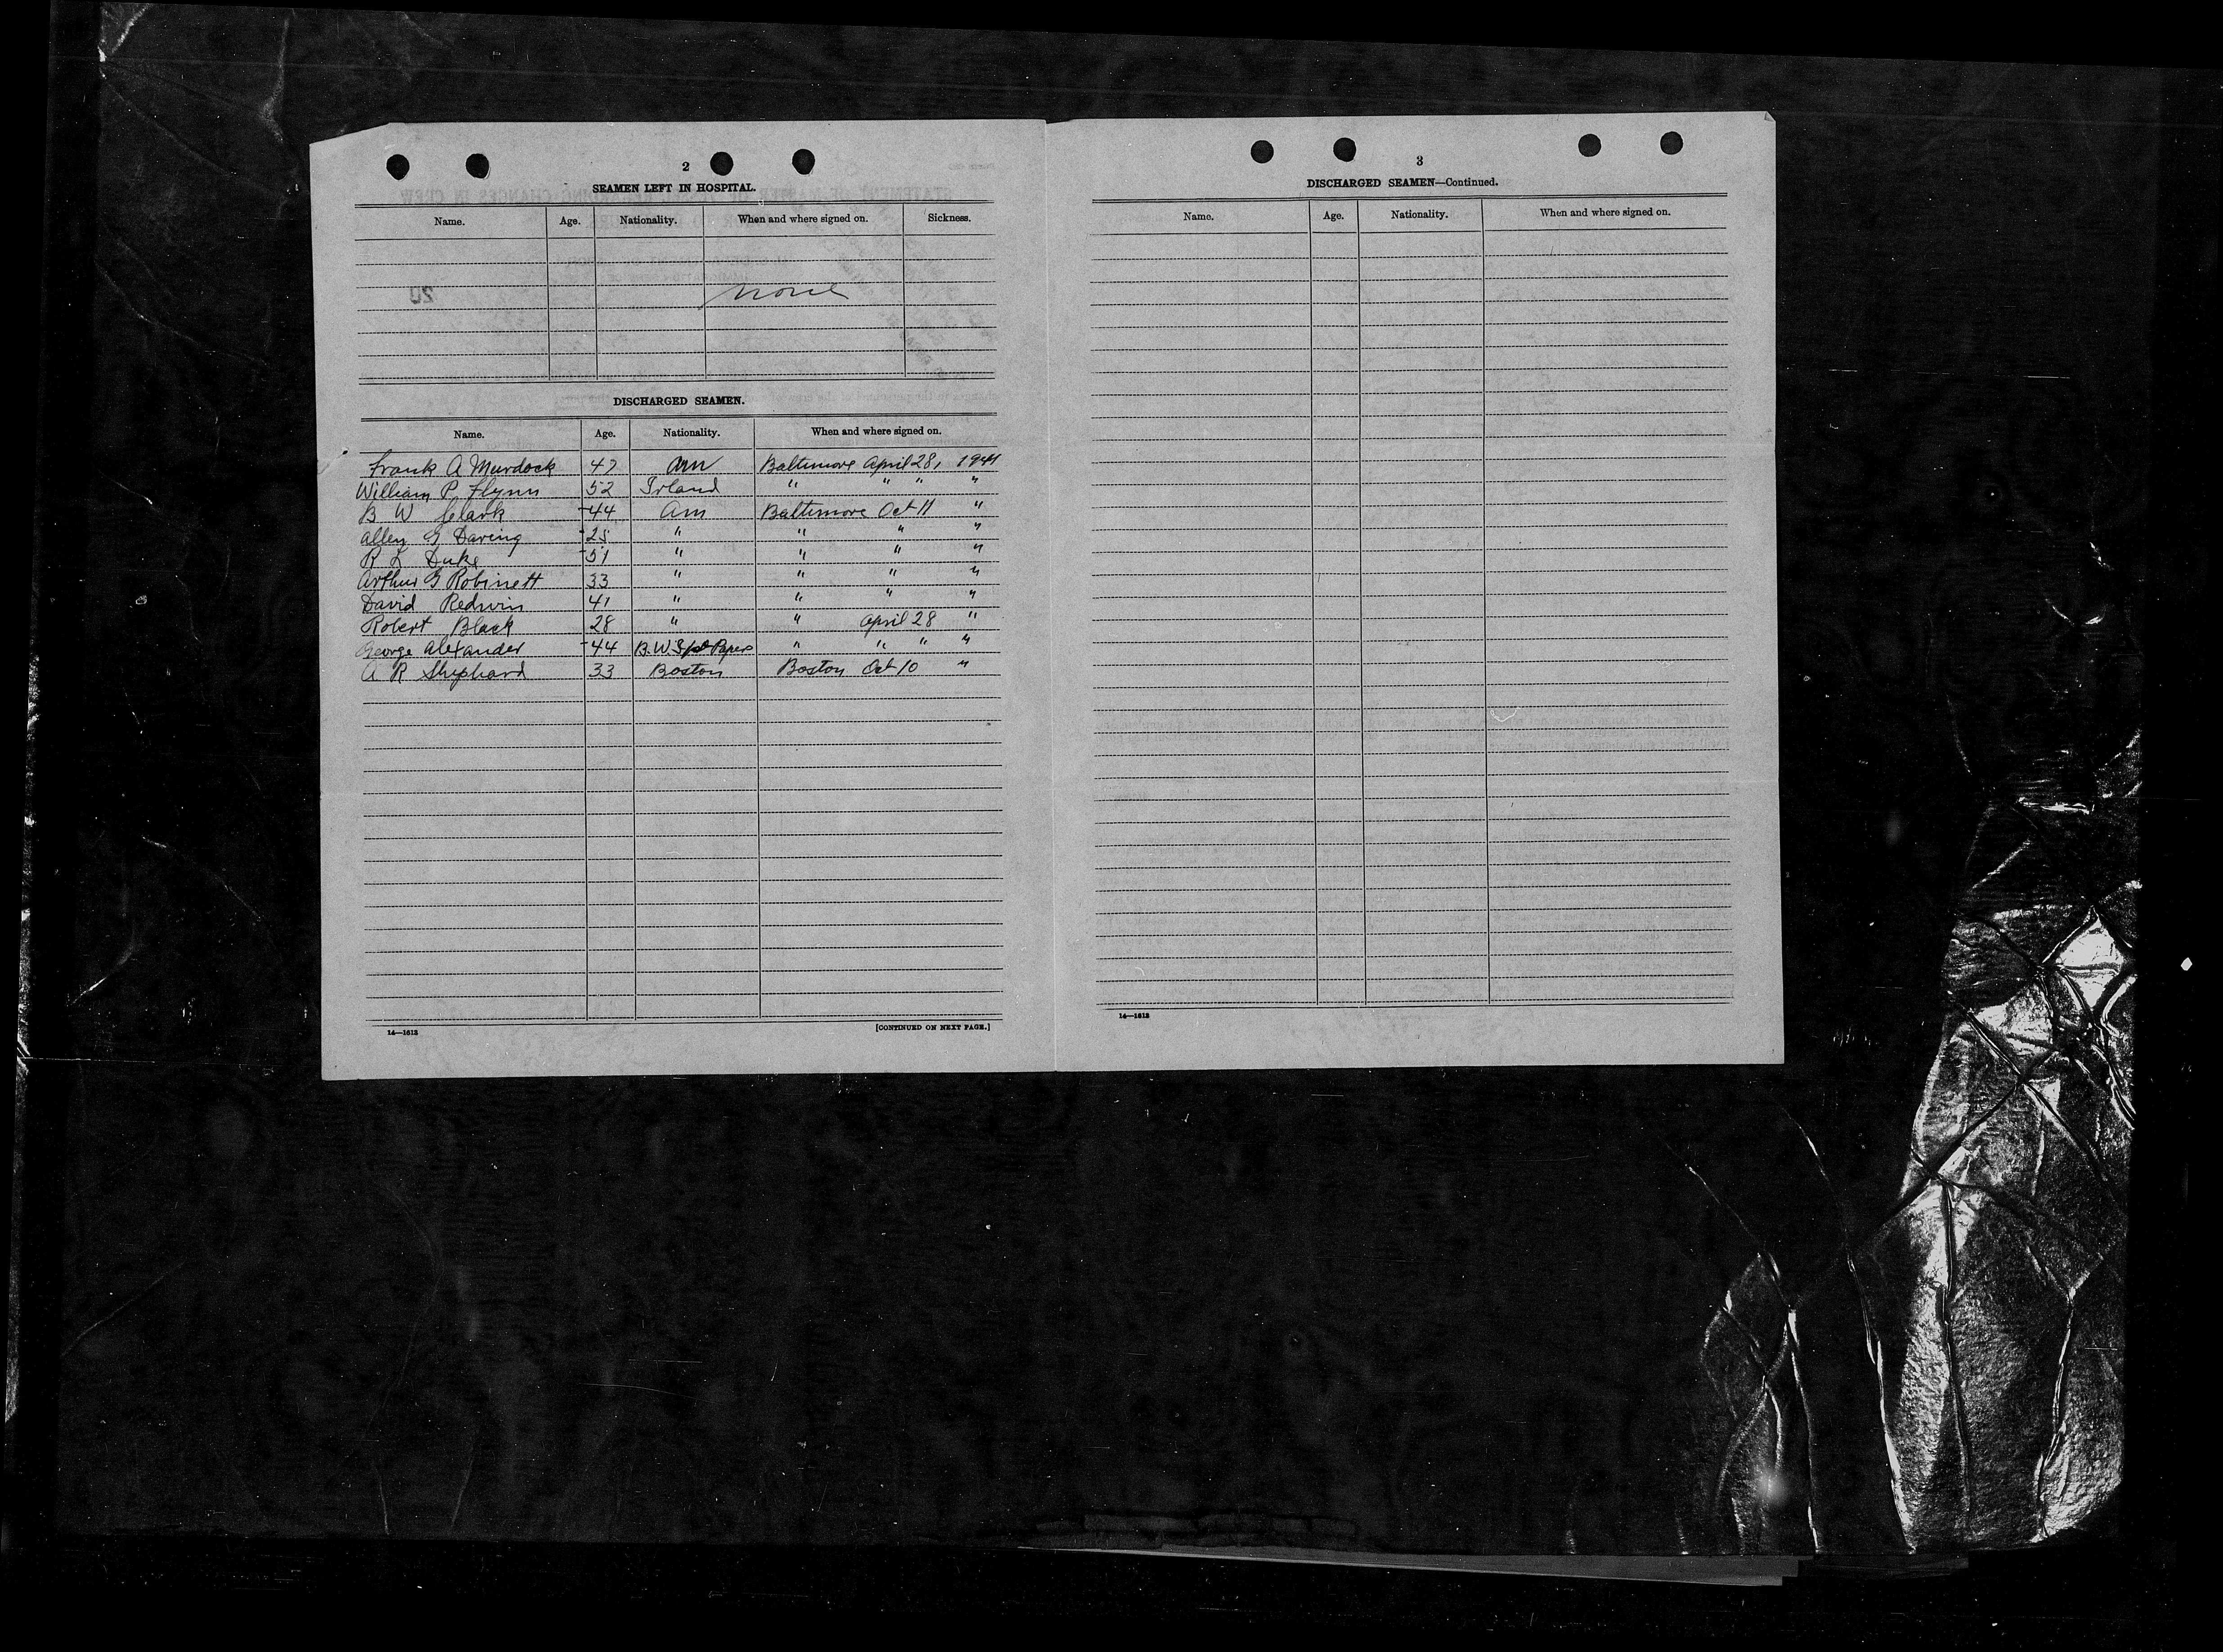 2
SEAMEN LEFT IN HOSPITAL.
Name. Age. Nationality. When and where signed on. Sickness.
none
DISCHARGED SEAMEN.
Name. Age. Nationality. When and where signed on.
Frank A Murdock 47 Am Baltimore April 28, 1941
William P Flynn 52 Irland " " " "
B W Clark 44 Am Baltimore Oct 11 "
Allen G Daring 25 " " " "
R L Duke 51 " " " "
Arthur G Robinett 33 " " " "
David Redwin 41 " " " "
Robert Black 28 " " April 28 "
George Alexander 44 B.W.I. Papers " " " "
A R Shiphard 33 Boston Boston Oct 10 "
14—1613
[CONTINUED ON NEXT PAGE.]
3
DISCHARGED SEAMEN—Continued.
Name. Age. Nationality. When and where signed on.
14—1613